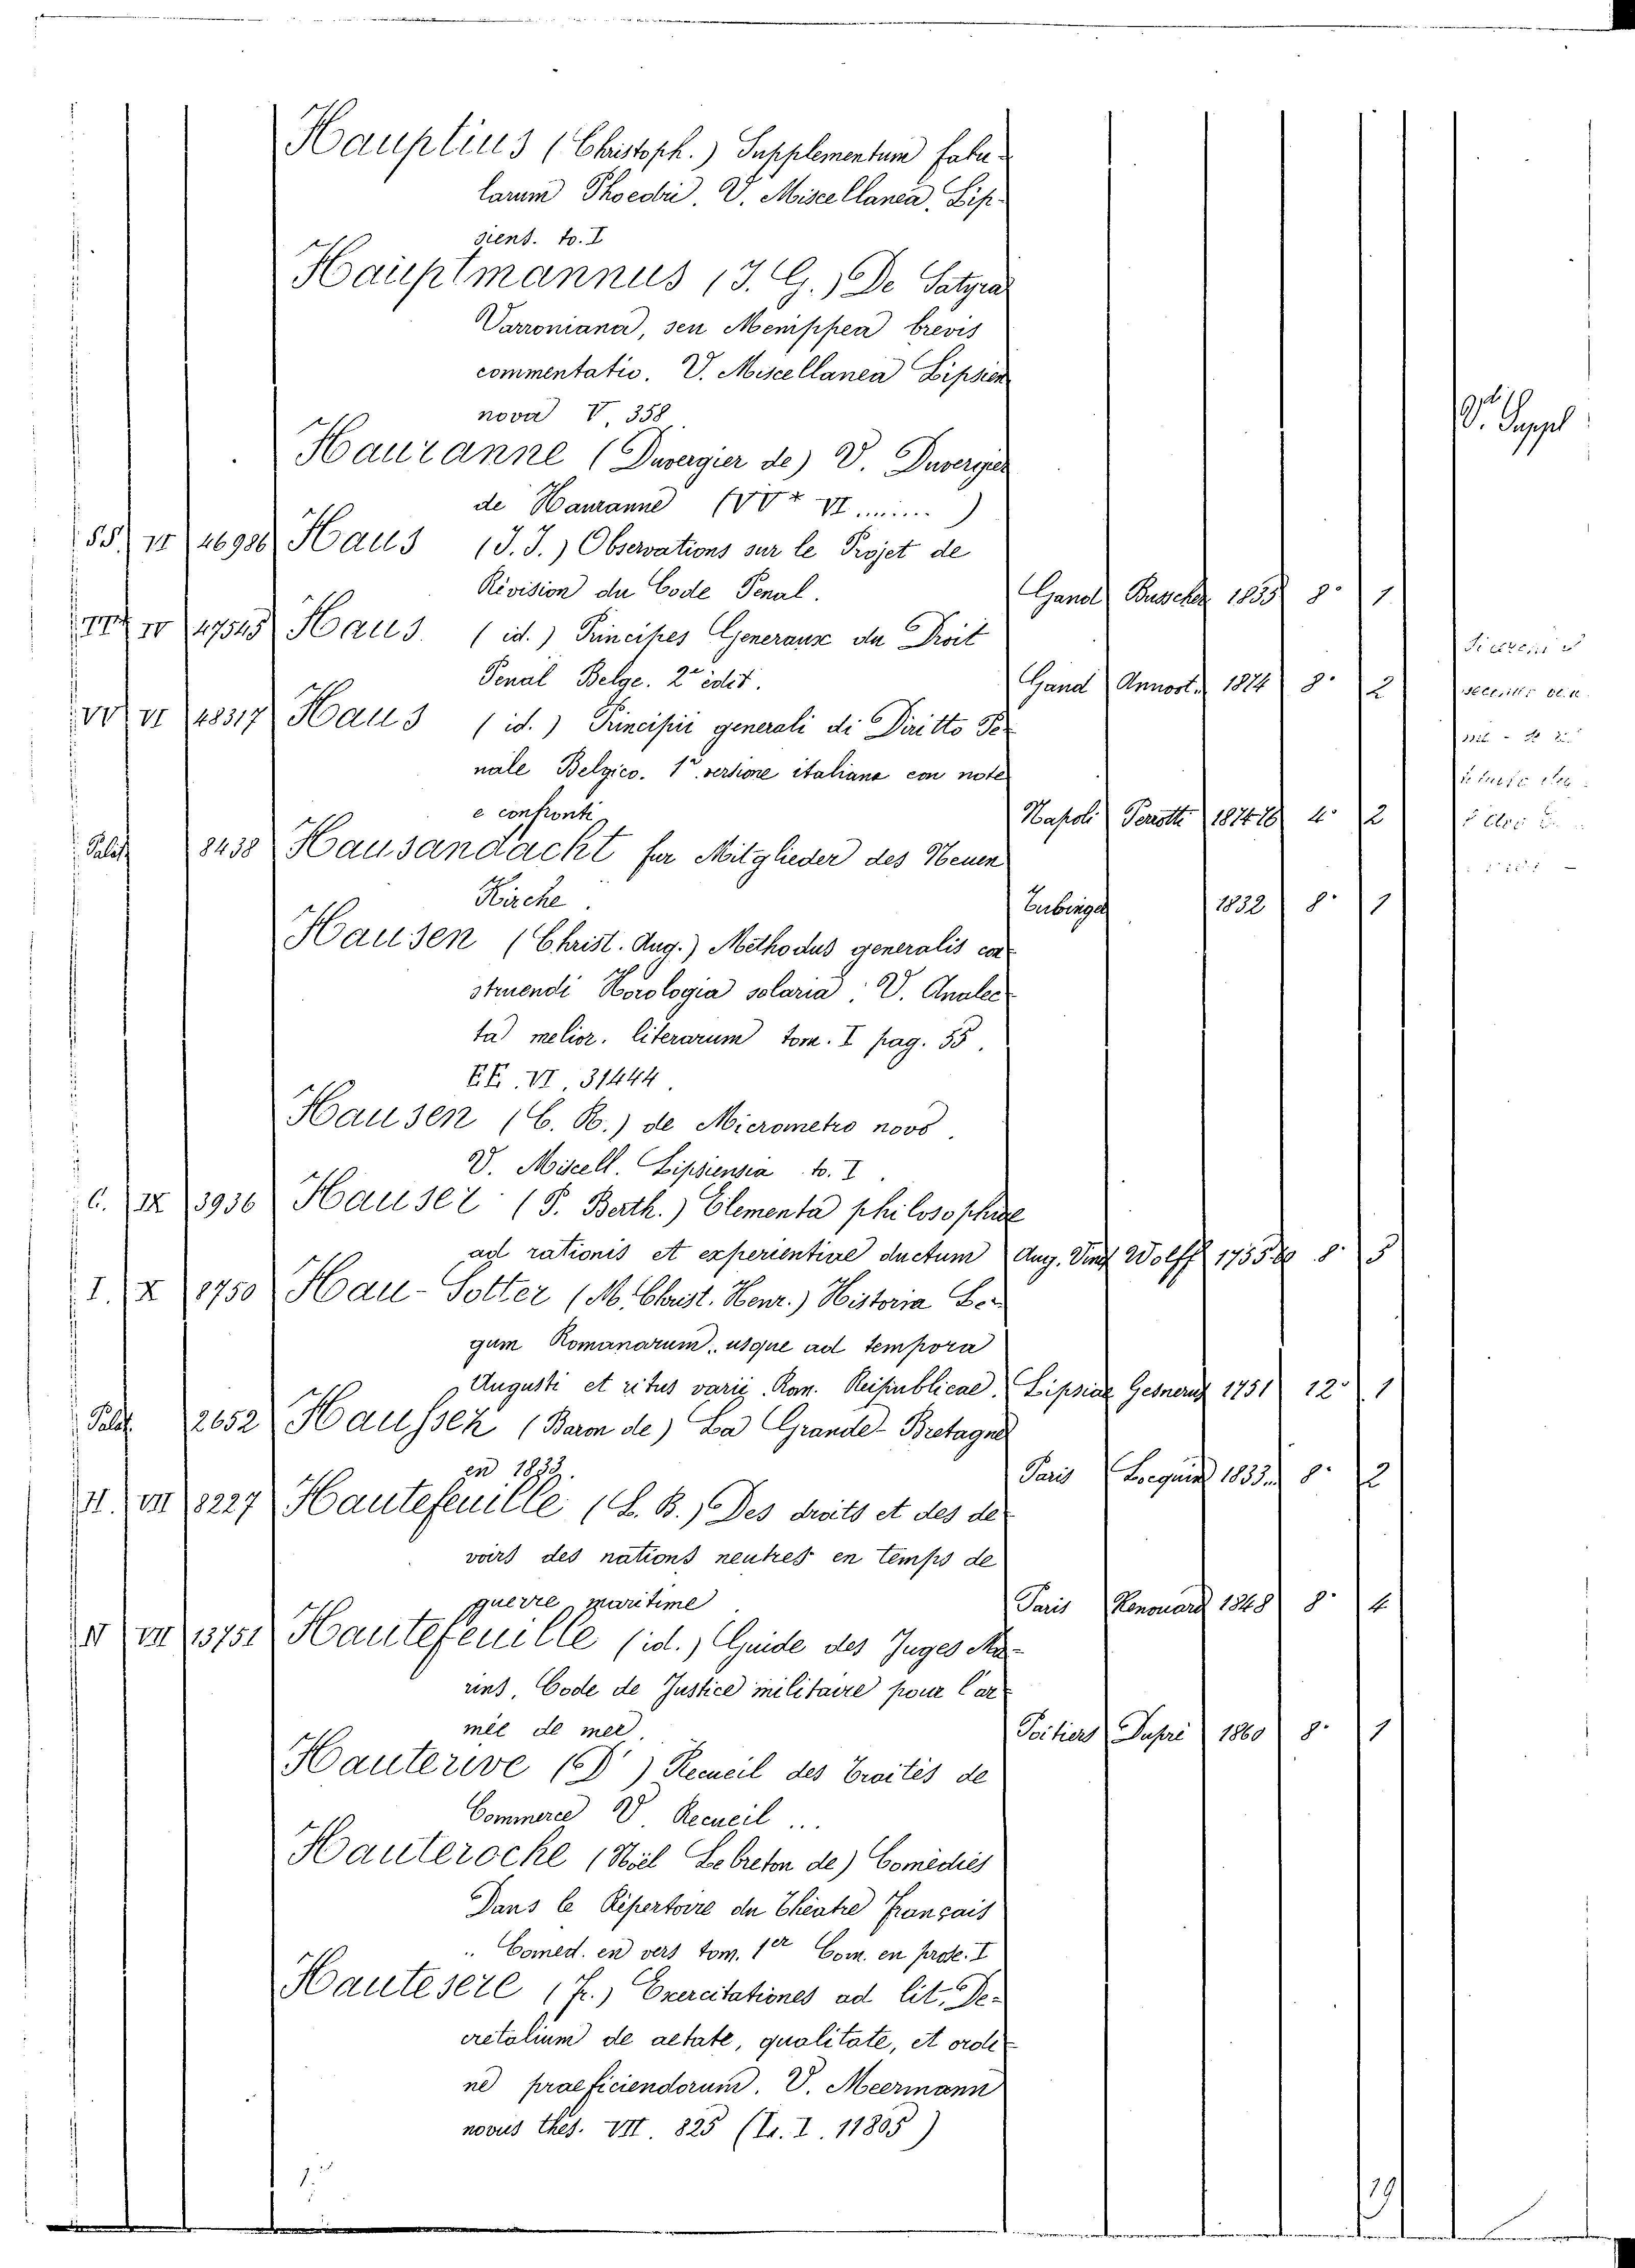 Hauptius (Christoph.) Supplementum fabu-
larum Phoedri. V. Miscellanea, Lip-
siens. to. I
Hauptmannus (J. G.) De Satyra
Varroniana, seu Menippea brevis
commentatio. V. Miscellanea Lipsien
nova V, 358
V. Suppl
Hauranne (Duvergier de) V. Duvergier
de Hauranne (VV* VI ...... )
SS. IV 46986 Haus (J. J.) Observations sur le Projet de
Révision du Code Penal. Gand Busscher 1835 8° 1
IV 47545 Haus. (id.) Principes Generaux du Droit
Penal Belge. 2e édit. Gand Annost. 1874 8° 2
VV VI 48317 Haus (id.) Principii generali di Diritto Pe-
nale Belgico. 1a versione italiana con note
e confronti Napoli Perrotti 1874-78 4° 2
Palat. 8438 Hausandacht fur Mitglieder des Neuen
Kirche. Tubinge 1832 8° 1
Hausen (Christ. Aug.) Methodus generalis con-
struendi Horologia solaria: V. Analec-
ta melior. literarum tom. I pag. 55.
EE. VI. 31444.
Hausen (C. R.) de Micrometro novo.
V. Miscell. Lipsiensia to. I.
C. IX 3936 Hauser (P. Berth.) Elementa philosophiae
ad rationis et experientiae ductum Aug. Vind Wolff 1755 8° 5
I. X 8750 Hau-Sotter (M. Christ. Henr.) Historia Le-
gum Romanarum, usque ad tempora
Augusti et ritus varii Rom. Reipublicae. Lipsiae Gesnerus 1751 12° 1
Palat. 2652 Haussez (Baron de) La Grande-Bretagne
en 1833. Paris Lecquin 1833. 8° 2
II. VII 8227 Hautefeuille (L. B.) Des droits et des de-
voirs des nations neutres en temps de
guerre maritime Paris Renouard 1848 8° 4
VII 13751 Hautefeuille (id.) Guide des Juges Ma-
rins, Code de Justice militaire pour l'ar-
mée de mer. Poitiers Dupré 1860 8° 1
Hauterive (D') Recueil des Traités de
Commerce V. Recueil ...
Hauteroche (Noël Lebreton de) Comédies
Dans le Répertoire du Théatre Français
.. Comed. en vers tom. 1er Com. en prose. I
Hautesere (F.) Exercitationes ad lit. De-
cretalium de aetate, qualitate, et ordi-
ne praeficiendorum. V. Meermann
novus thes. VII. 825 (Tr. I. 11805)